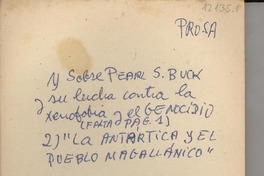 12135.1
PROSA
1) Sobre PEARL S. BUCK
y su lucha contra la
xenofobia y el GENOCIDIO
(FALTA PAG. 1)
2) "LA ANTARTICA Y EL
PUEBLO MAGALLÁNICO"